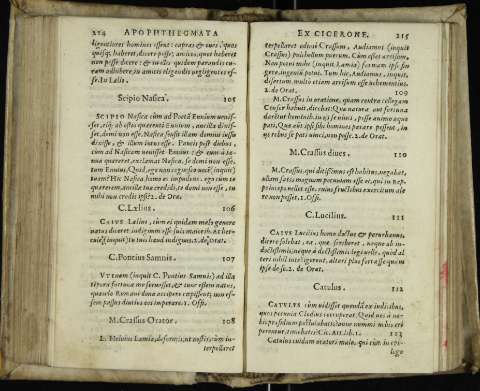 224 APOPHTHEGMATA
ligentiores homines essent: capras & oues quot
quisq; haberet, dicere posse; amicos, quot haberet
non posse dicere: & in illis quidem parandis cu-
ram adhibere, in amicis eligendis negligentes es-
se. In Lælio.
Scipio Nasica. 105
SCIPIO Nasica cùm ad Poëtã Ennium venis-
set, eiq; ab ostio quærenti Ennium, ancilla dixis-
set, domi non esse. Nasica sensit illam domini iussu
dixisse, & illum intus esse. Paucis pòst diebus,
cùm ad Nasicam venisset Ennius: & eum à ia-
nua quæreret, exclamat Nasica, se domi non esse.
tum Ennius, Quid, ego non cognosco vocẽ, inquit,
tuam? Hîc Nasica homo es impudens. ego cum te
quærerem, ancillæ tuæ credidi, te domi non esse, tu
mihi non credis ipsi? 2. de Orat.
C. Lælius. 106
CAIVS Lælius, cùm ei quidam malo genere
natus diceret, indignum esse suis maioribus. At her-
cule (inquit) tu tuis haud indignus. 2. de Orat.
C. Pontius Samnis. 107
VTINAM (inquit C. Pontius Samnis) ad illa
tẽpora fortuna me seruasset, & tunc essem natus,
quando Romani dona accipere cœpissent; non es-
sem passus diutius eos imperare. 2. Offi.
M. Crassus Orator. 108
L. Heluius Lamia, deformis, ut nostis; cùm in-
terpellaret
EX CICERONE. 225
terpellaret odiosè Crassum. Audiamus (inquit
Crassus) pulchellum puerum. Cùm esset arrisum,
Non potui mihi (inquit Lamia) formam ipse fin-
gere, ingenium potui. Tum hic, Audiamus, inquit,
disertum. multò etiam arrisum est vehementius.
2. de Orat. 109
M. Crassus in oratione, quam contra collegam
Censor habuit, dicebat: Quæ natura aut fortuna
darẽtur hominib. in iis se vinci posse animo æquo
pati, Quæ aũt ipsi sibi homines parare possent, in
iis rebus se pati vinci, non posse. 2. de Orat.
M. Crassus diues. 110
M. Crassus, qui ditissimus est habitus, negabat,
ullam satis magnam pecuniam esse ei, qui in Rep.
princeps vellet esse. cuius fructibus exercitum ale-
re non posset. 1. Offi.
C. Lucilius. 111
CAIVS Lucilius homo doctus & perurbanus,
dicere solebat, ea, quæ scriberet, neque ab in-
doctissimis, neque à doctissimis legi velle. quòd al-
teri nihil intelligerent, alteri plus fortasse quàm
ipse de se. 2. de Orat.
Catulus. 112
CATVLVS cùm vidisset quosdã ex iudicibus,
quos pecunia Clodius corruperat, Quid vos à no-
bis præsidium postulabatis? an ne nummi vobis eri-
perentur, timebatis? Cic. Att. lib. 1. 113
Catulus cuidam oratori malo, qui cùm in epi-
logo